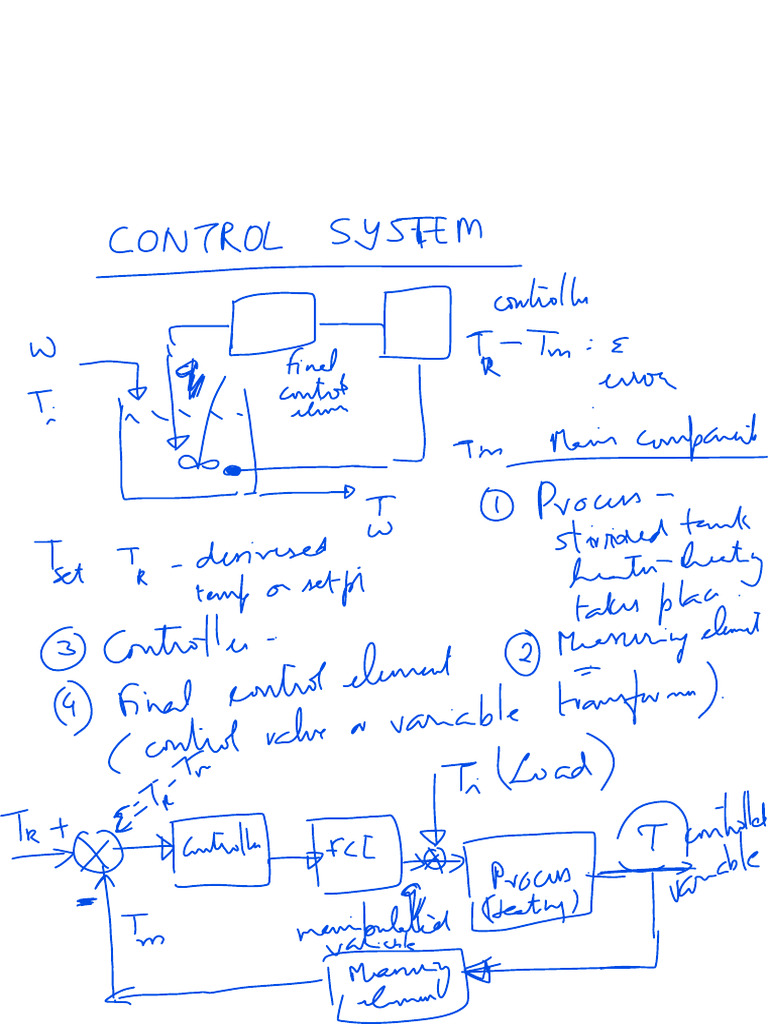 CONTROL SYSTEM
controller
W
Final
control
elem
TR - Tm = ε
error
Ti
q
Tm
Main component
① Process -
stirred tank
heater - heating
takes place
T
W
Tset TR - desired
temp or setpt
③ Controller -
② Measuring element
④ Final control element
(control valve or variable transformer).
Ti (Load)
ε = TR - Tr
TR +
Controller
FCE
Process
(Heating)
T controlled
variable
-
Tm
q
manipulated
variable
Measuring
element